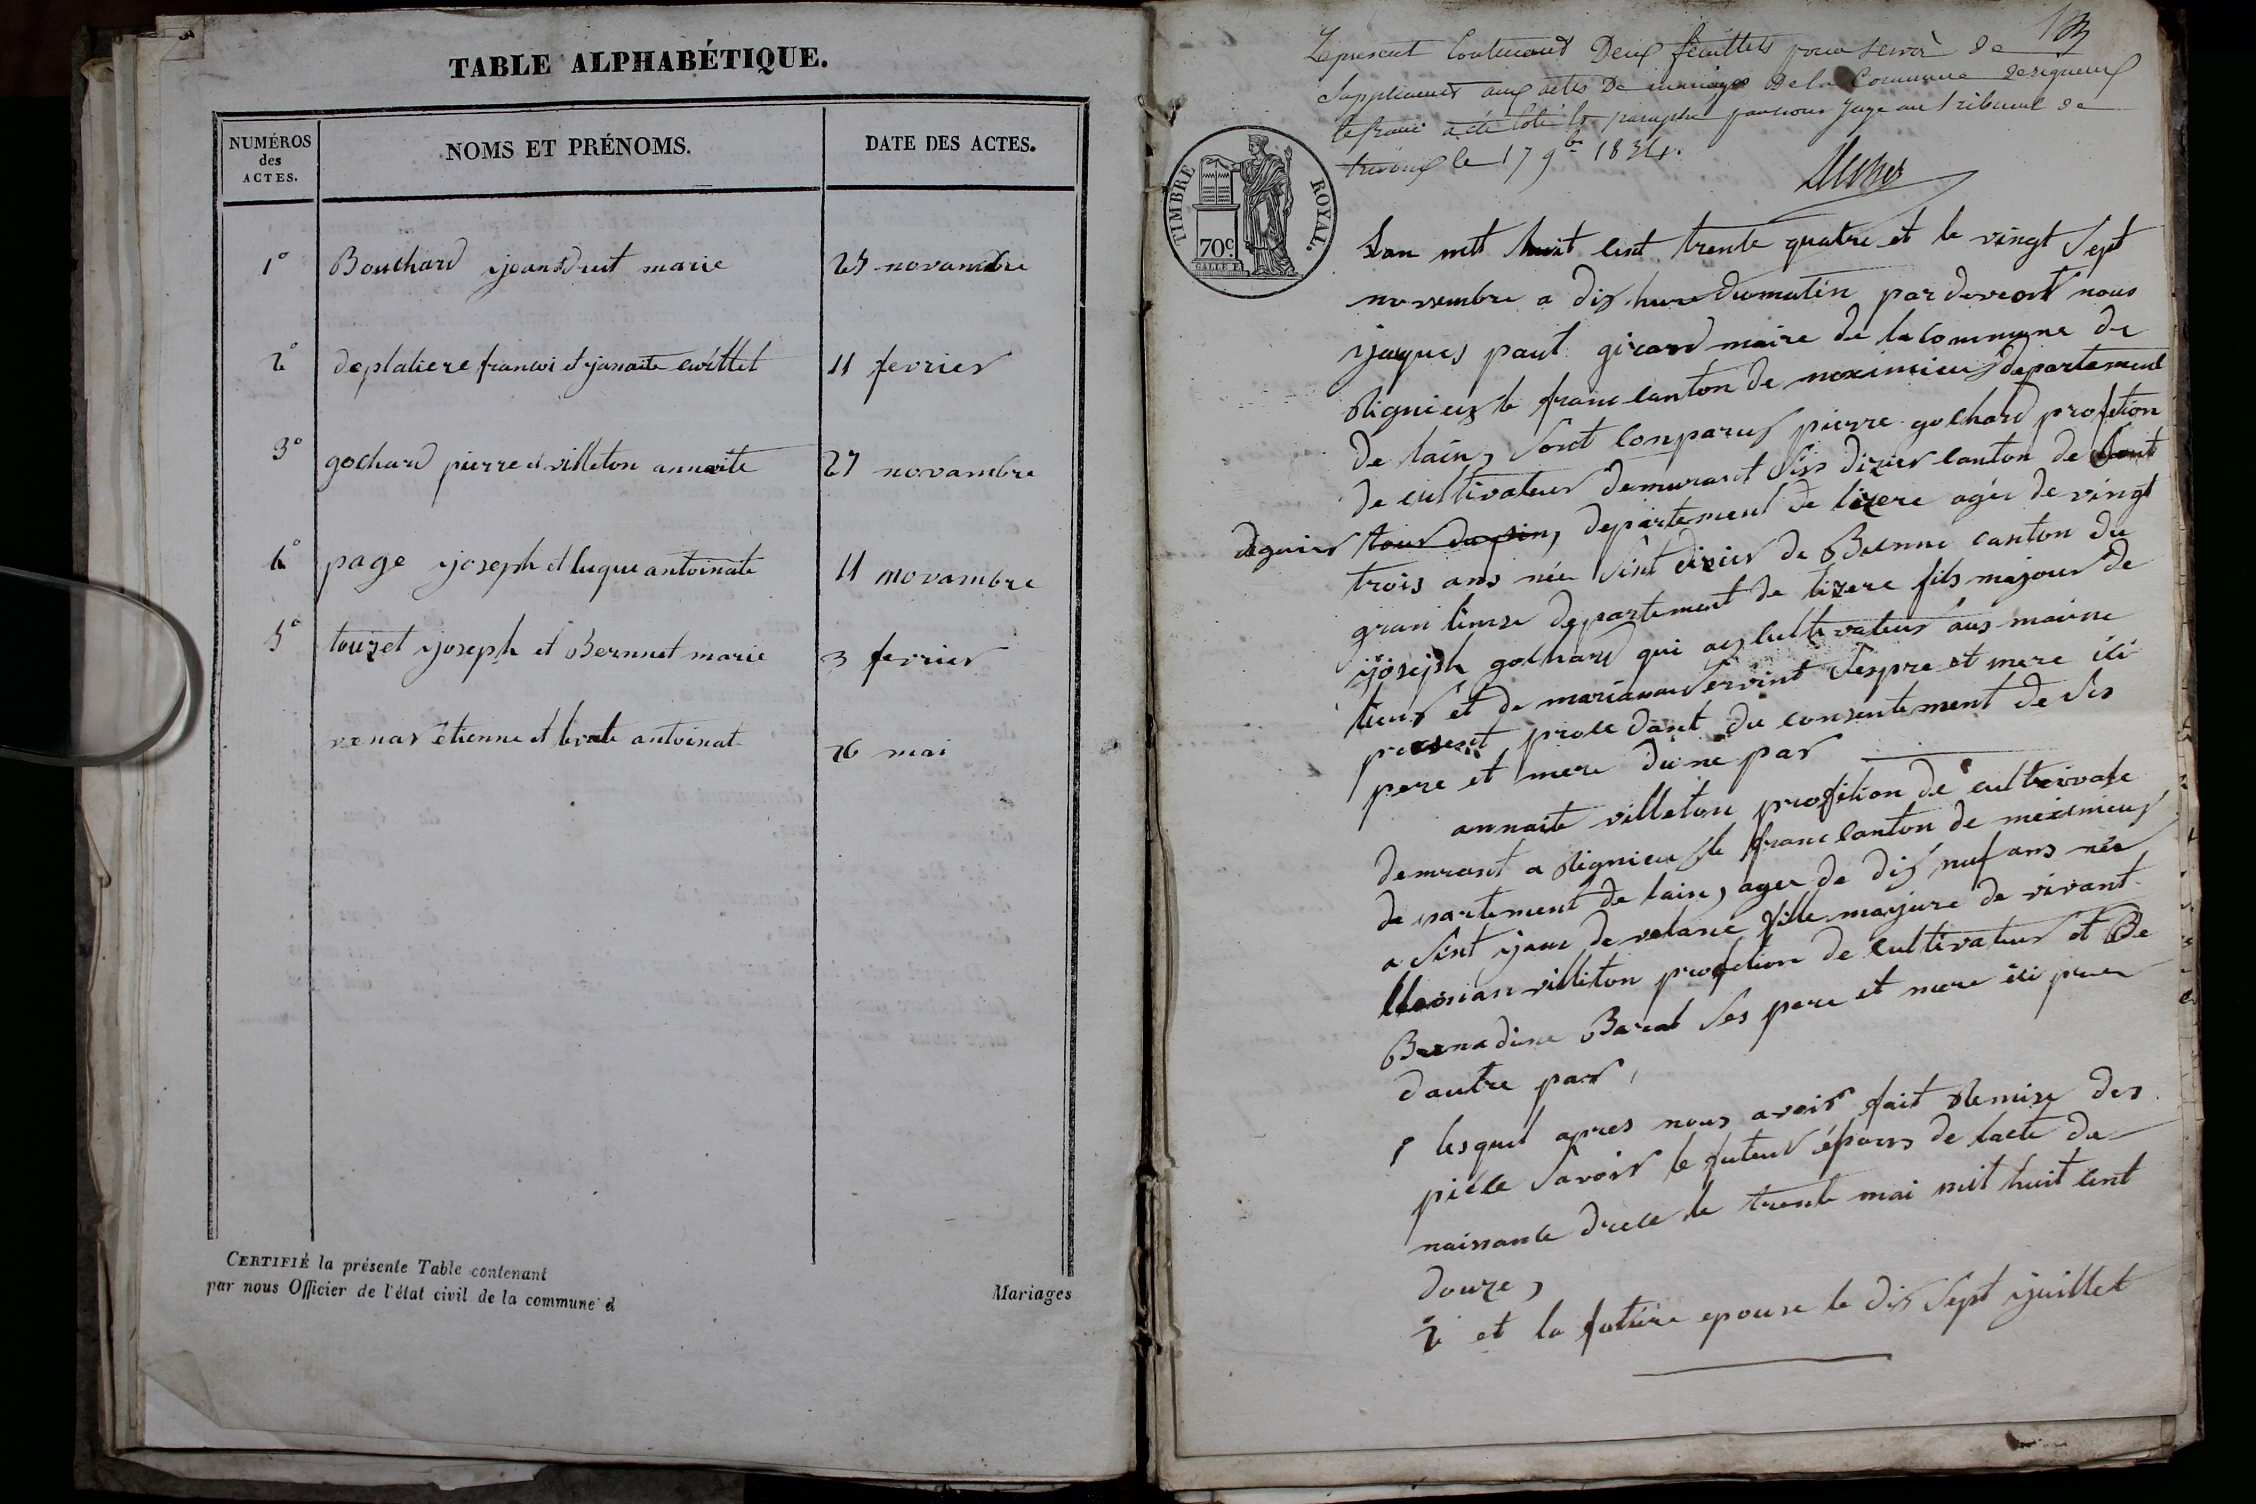 TABLE ALPHABÉTIQUE.
NUMÉROS
des
ACTES.
NOMS ET PRÉNOMS.
DATE DES ACTES.
1° Bouchard jean druet marie 25 novambre
2° deplatiere francoi et janaite 11 fevrier
3° gochard pierre et villeton annaite 27 novambre
4° page joseph et luque antoinate 11 novambre
5° touzet joseph et Bernnet marie 3 fevrier
renar etienne et antoinat 26 mai
CERTIFIÉ la présente Table contenant
par nous Officier de l'état civil de la commune d
Mariages
Le present Contenant Deux feuillets pour servir de
Supplement aux actes De mariages De la Commune de rigneux
le franc a été Coté et paraphé par nous Juge au Tribunal de
trevoux le 17 9b 1834.
TIMBRE ROYAL.
70c.
Lan mil huit cent trente quatre et le vingt Sept
novembre a dix hure du matin par devant nous
jaques paul girard maire de la commune de
Rignieux le franc canton de meximieux departement
de lain, Sont comparus pierre gochard profetion
de cultivateur demurant Sin dizier canton de
tour du pin, departement de lizere agér de vingt
trois ans née Sint dizier de canton du
gran departement de lizere fils majour de
joseph gochard qui cultivateur
et de Ses pre et mere ici
present procedant du consentement de Ses
pere et mere dune par
annaite villeton profetion de
demrant a Rignieux le franc canton de meximieux
departement de lain, ager de dix nuf ans née
a Sint de fille marjure de vivant
villeton profetion de cultivateur et De
Bernadine Baral Ses pere et mere ici
dautre par,
lesquel apres nous avoir fait Remise des
piece Savoir le futeur épour de lacte de
naissance le trente mai mil huit cent
douze,
2 et la future epouse le dix Sept juillet